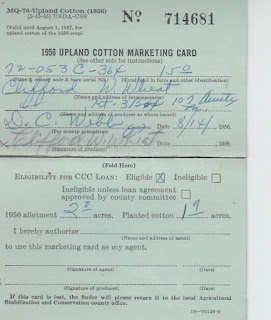 MQ-76-Upland Cotton (1956)
(3-15-56) USDA-CSS
(Valid until August 1, 1957, for
upland cotton of the 1956 crop)
No 714681
1956 UPLAND COTTON MARKETING CARD
(See other side for instructions)
72-053 C-364 150
(State & county code & farm serial No.) (Total land in farm and other identification)
Clifford W Wheat
Rt. 3 Box 107 Amite
(Name and address of producer to whom issued)
8/14/, 1956.
(For county committee) (Date)
Clifford W. Wheat, 1956.
(Signature of producer) (Date)
(Fold Here)
ELIGIBILITY FOR CCC LOAN: Eligible ☒ Ineligible ☐
Ineligible unless loan agreement
approved by county committee ☐
1956 allotment acres. Planted cotton acres.
I hereby authorize
(Name and address of agent)
to use this marketing card as my agent.
(Signature of agent) (Date)
(Signature of producer) (Date)
If this card is lost, the finder will please return it to the local Agricultural
Stabilization and Conservation county office.